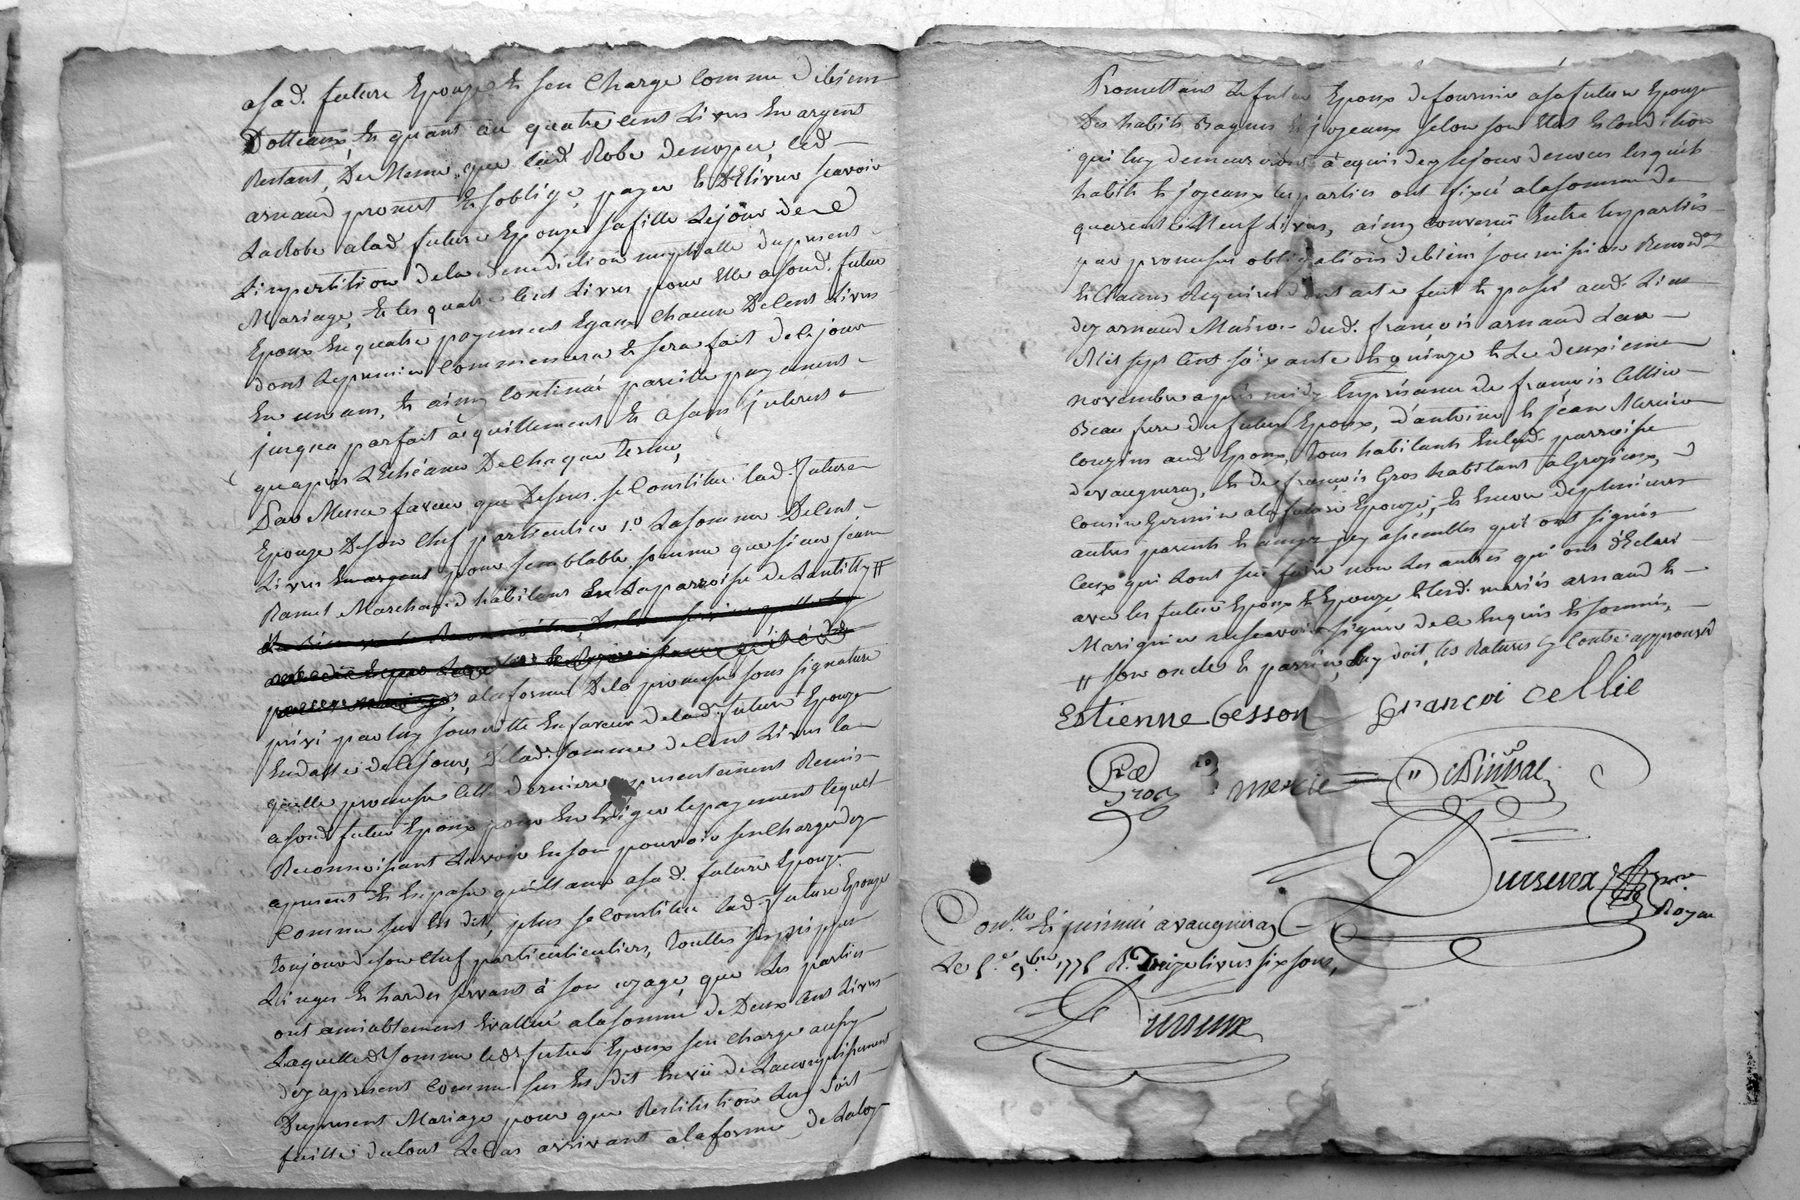 asad. future Epouze Et sen Charge Comme debiens
Dotteaux, Et quant au quatre Cent Livres En argent
Restant, De Mesme que lad. Robe denopce, led
arnaud promet Et soblige, payer Et Délivrer scavoir
La Robe alad. future Epouze sa fille Le jour de
Limpertition dela Benediction nuptialle du present
Mariage, Et les quatre Cent Livres pour Elle a sond. futur
Epoux En quatre payements Egaux Chacun De Cent Livres
dont Le premier Commencera Et sera fait de Ce jour
En un an, Et ainsy Continué pareille payement
jusqua parfait acquittement Et asans jnterest
quapres L'Echéance De Chaque terme,
De Mesme faveur que Dessus se Constitue lad. future
Epouze De son Chef particulier 1.º La somme De Cent
Livres En argent pour semblable somme que sieur jean
Marchand habitant En La parroisse de Lentilly //
, a la forme De la promesse sous signature
privé par luy souscritte En faveur de lad. future Epouze
En datte de Ce jour, De lad. somme de Cent Livres la
quelle promesse Cette derniere a presentement Remis
a sond. futur Epoux pour En Exiger le payement lequel
Reconnoissant Lavoir En son pouvoir sen Charge dez
apresent Et En passe quittance asad. future Epouze
Comme sus Est dit, plus se Constitue lad. future Epouze
toujours de son Chef particulier, touttes ses nippes
Linges Et hardes servant à son uzage, que Les parties
ont amiablement Evallué a la somme de Deux Cent Livres
Laquelle somme led. futur Epoux sen Charge aussy
dez apresent Comme sus Est dit En vüe de Laccomplissement
Du present Mariage pour que Restitution Luy Soit
faitte du tout Le Cas arrivant a la forme de La loy
Promettant Le futur Epoux de fournir asa future Epouze
Des habits Bagues Et joyeaux selon son Etat Et Condition
qui luy demeureront acquis dez le jour de noces lesquels
habits Et joyeaux les parties ont fixé a la somme de
quarente Neuf Livres, ainsy Convenu Entre les parties
par promesse obligations de biens soumission Renond.on
Et Clauses Requises dont acte fait Et passé aud. Lieu
dez arnaud Maison dud. françois arnaud Lan
Mil sept Cent soixante Et quinze Et Le deuxieme
novembre apres midy En présence de françois Cellie
Beau frere du futur Epoux, d'antoine Et jean Mercier
Couzins aud. Epoux, tous habitants En lad. parroisse
de vaugneray, Et de françois Gros habitant a Grezieux,
Cousin Germain a la future Epouze, Et Encor de plusieurs
autres parents Et amys y assemblés qui ont signés
Ceux qui Lont sçu faire non Les autres qui ont déclaré
avec les futurs Epoux Et Epouze Et lesd. mariés arnaud Et
ne scavoir signer de ce Enquis Et sommés,
// son oncle Et parrain luy doit, les Ratures Cy Contre approuvé
Estienne besson françoi cellie
fra Gros mercie
Dursurx
Royau
Con.lle Et jnsinué a vaugneray
Le 5.e 9bre 1775 R. Treize livres six sous,
Dursurx